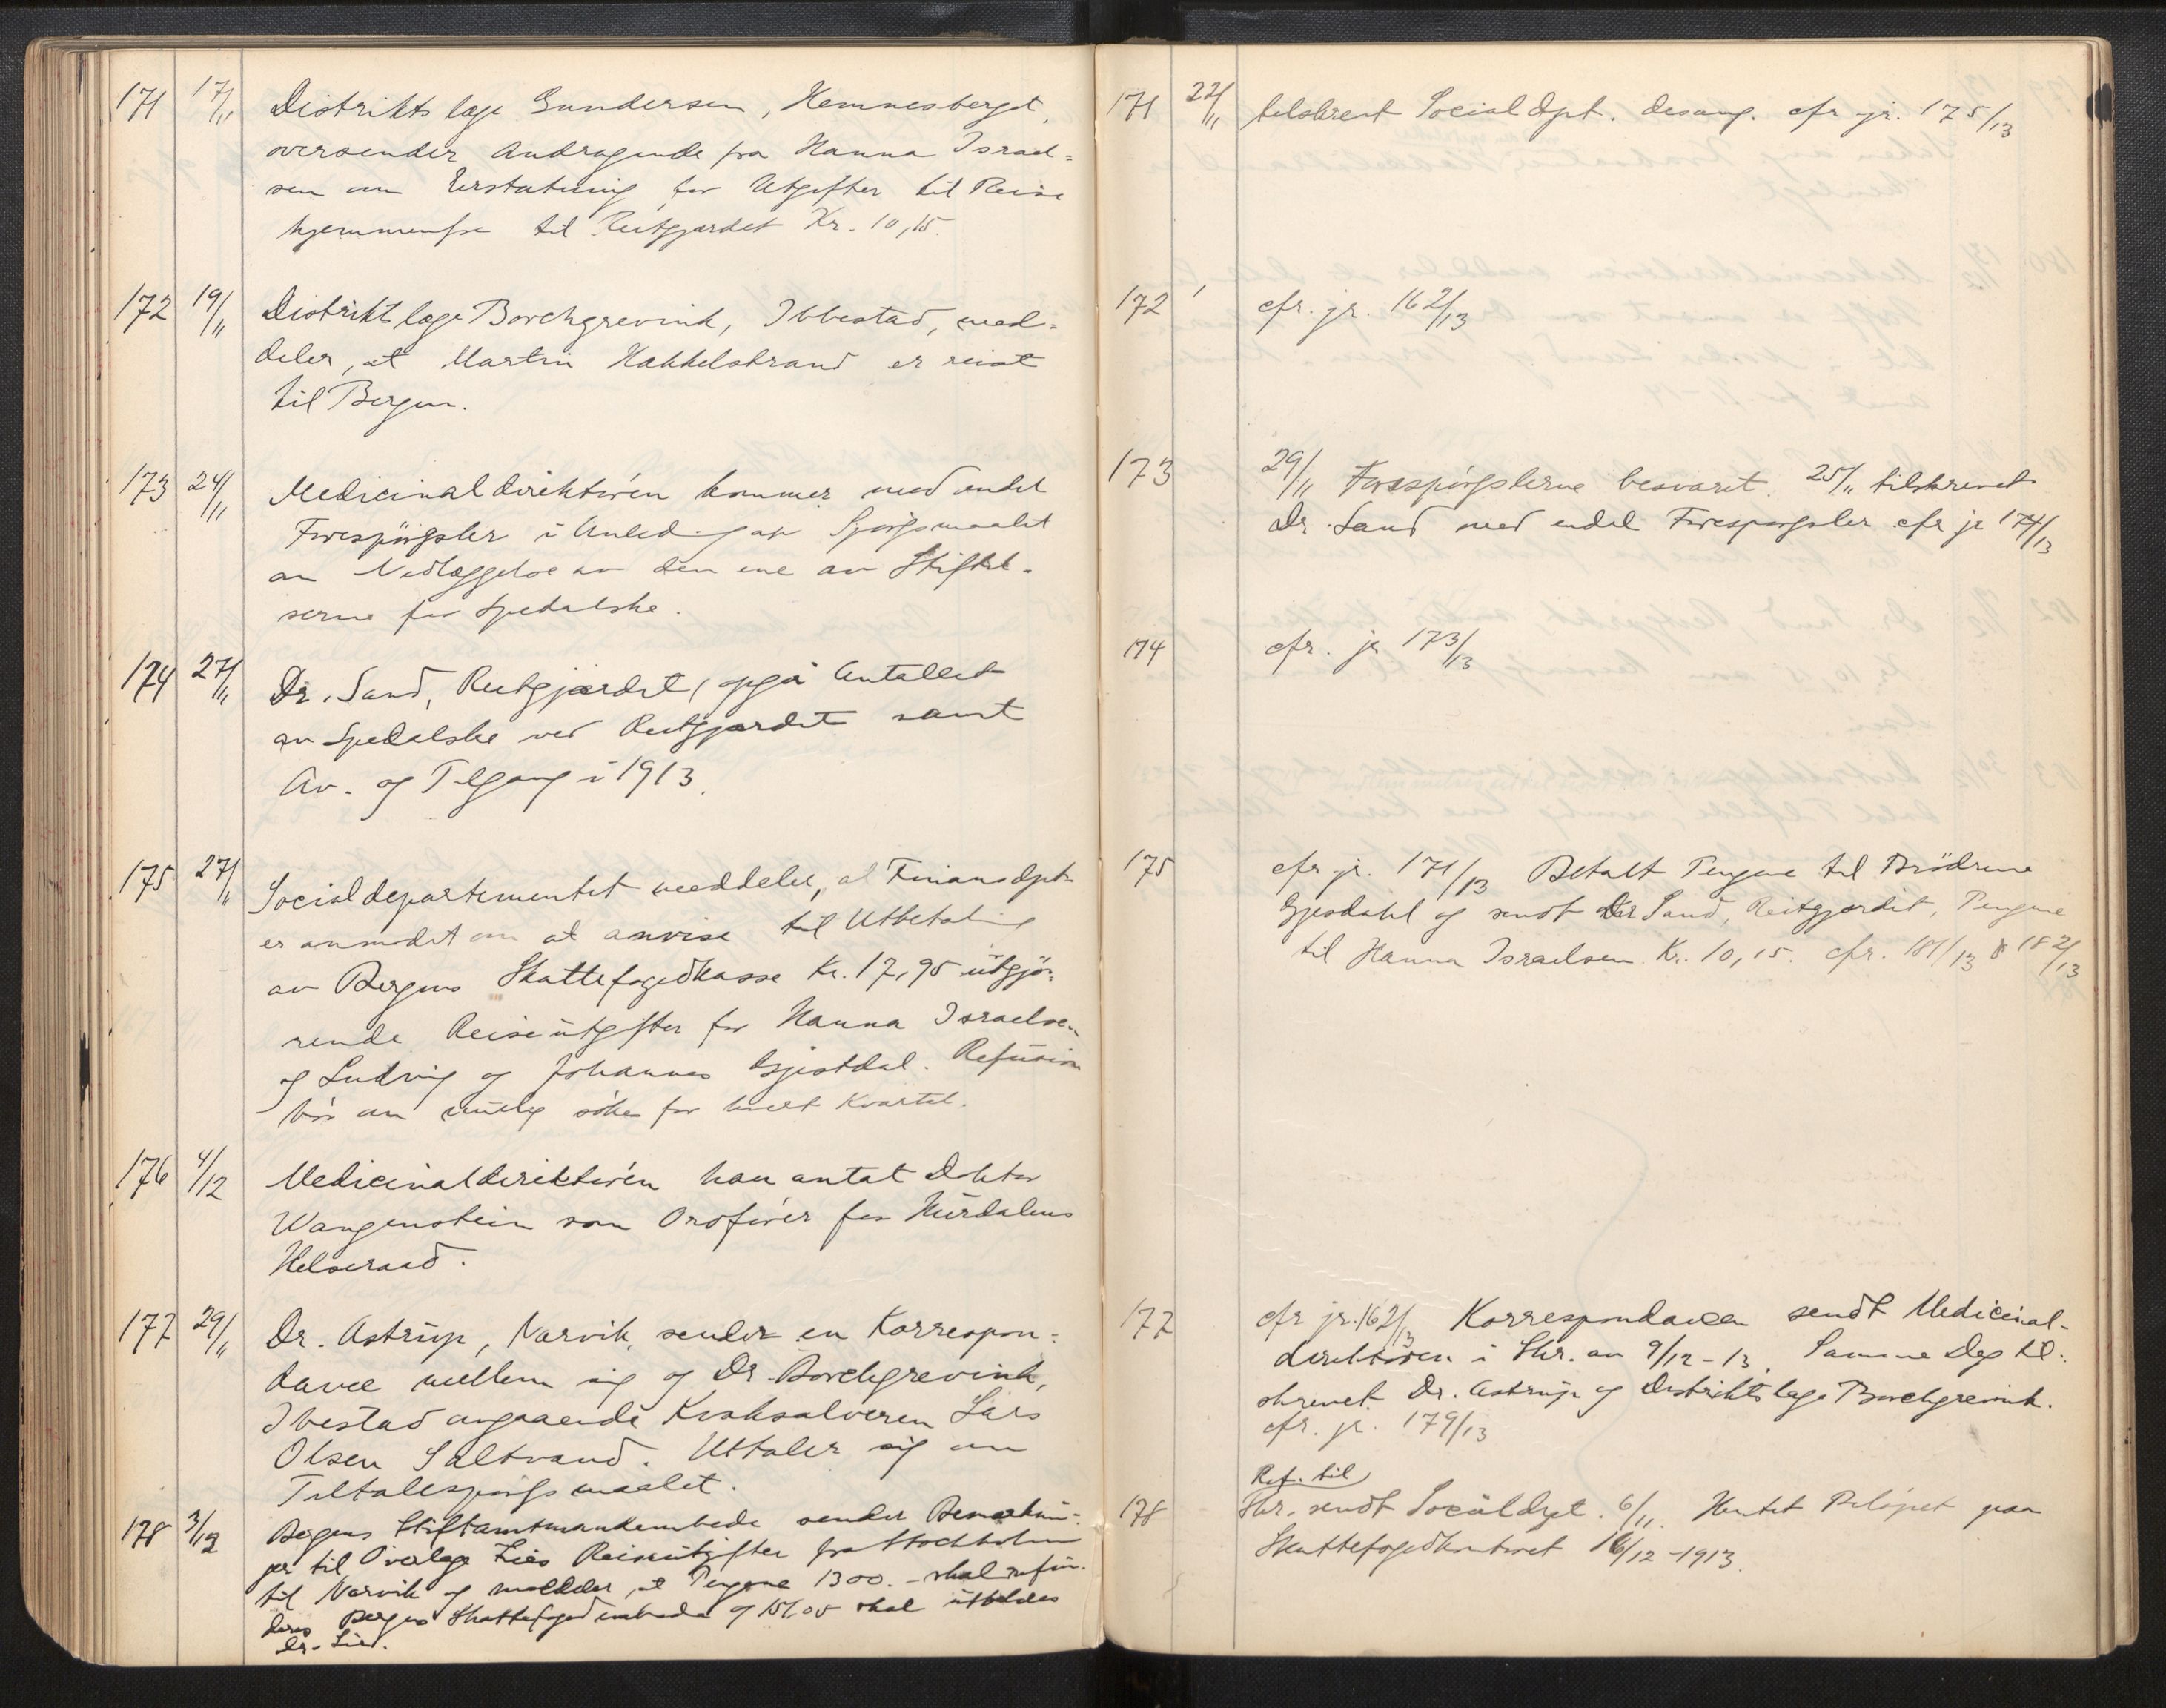 171 17/11 Distriktslæge Gundersen, Hemnesberget,
oversender Andragende fra Hanna Israel-
sen om Erstatning for Utgifter til Reise
hjemmenfra til Reitgjærdet Kr. 10,15.
172 19/11 Distriktslæge Borchgrevink, Ibbestad, med-
deler, at Martin Hakkelstrand er reist
til Bergen.
173 24/11 Medicinaldirektøren kommer med endel
Forespørgsler i Anledning av Spørgsmaalet
om Nedlæggelse av den ene av Stiftel-
serne for Spedalske.
174 27/11 Dr. Sand, Reitgjærdet, opgir Antallet
av Spedalske ved Reitgjærdet samt
Av- og Tilgang i 1913.
175 27/11 Socialdepartementet meddeler, at Finansdpt.
er anmodet om at anvise til Utbetaling
av Bergens Skattefogedkasse Kr. 17,95 utgjø-
rende Reiseutgifter for Hanna Israelsen
og Ludvig og Johannes Gjestdal. Refusion
bør om mulig søkes for hvert Kvartal.
176 4/12 Medicinaldirektøren har antat Doktor
Wangenstein som Ordfører for Hurdalens
Helseraad.
177 29/11 Dr. Astrup, Narvik, sender en Korrespon-
dance mellem sig og Dr. Borchgrevink,
Ibestad angaaende Kvaksalveren Lars
Olsen Saltvand. Uttaler sig om
Tiltalespørgsmaalet.
178 3/12 Bergens Stiftamtmandembede sender Bemærknin-
ger til Overlæge Lies Reiseutgifter fra Stockholm
til Narvik og melder, at Pengene 1300.- skal refun-
deres Bergens Skattefogedembede og 151,05 skal utbetales
Dr. Lie.
171 22/11 tilskrevet Socialdpt. desang. cfr jr. 175/13
172 cfr. jr. 162/13
173 29/11 Forespørgslerne besvaret. 25/11 tilskrevet
Dr. Sand med endel Forespørgsler cfr jr 174/13
174 cfr. jr 173/13
175 cfr jr. 171/13 Betalt Pengene til Brødrene
Gjesdahl og sendt Dr Sand, Reitgjerdet, Pengene
til Hanna Israelsen. Kr. 10,15. cfr. 181/13 & 182/13
177 cfr jr. 162/13 Korrespondancen sendt Medicinal-
direktøren i Skr. av 9/12-13. Samme Dag til-
skrevet Dr. Astrup og Distriktslæge Borchgrevink.
cfr. jr. 179/13
Ref. til
178 Skr. sendt Socialdpt. 6/11. Hentet Beløpet paa
Skattefogedkontoret 16/12-1913.